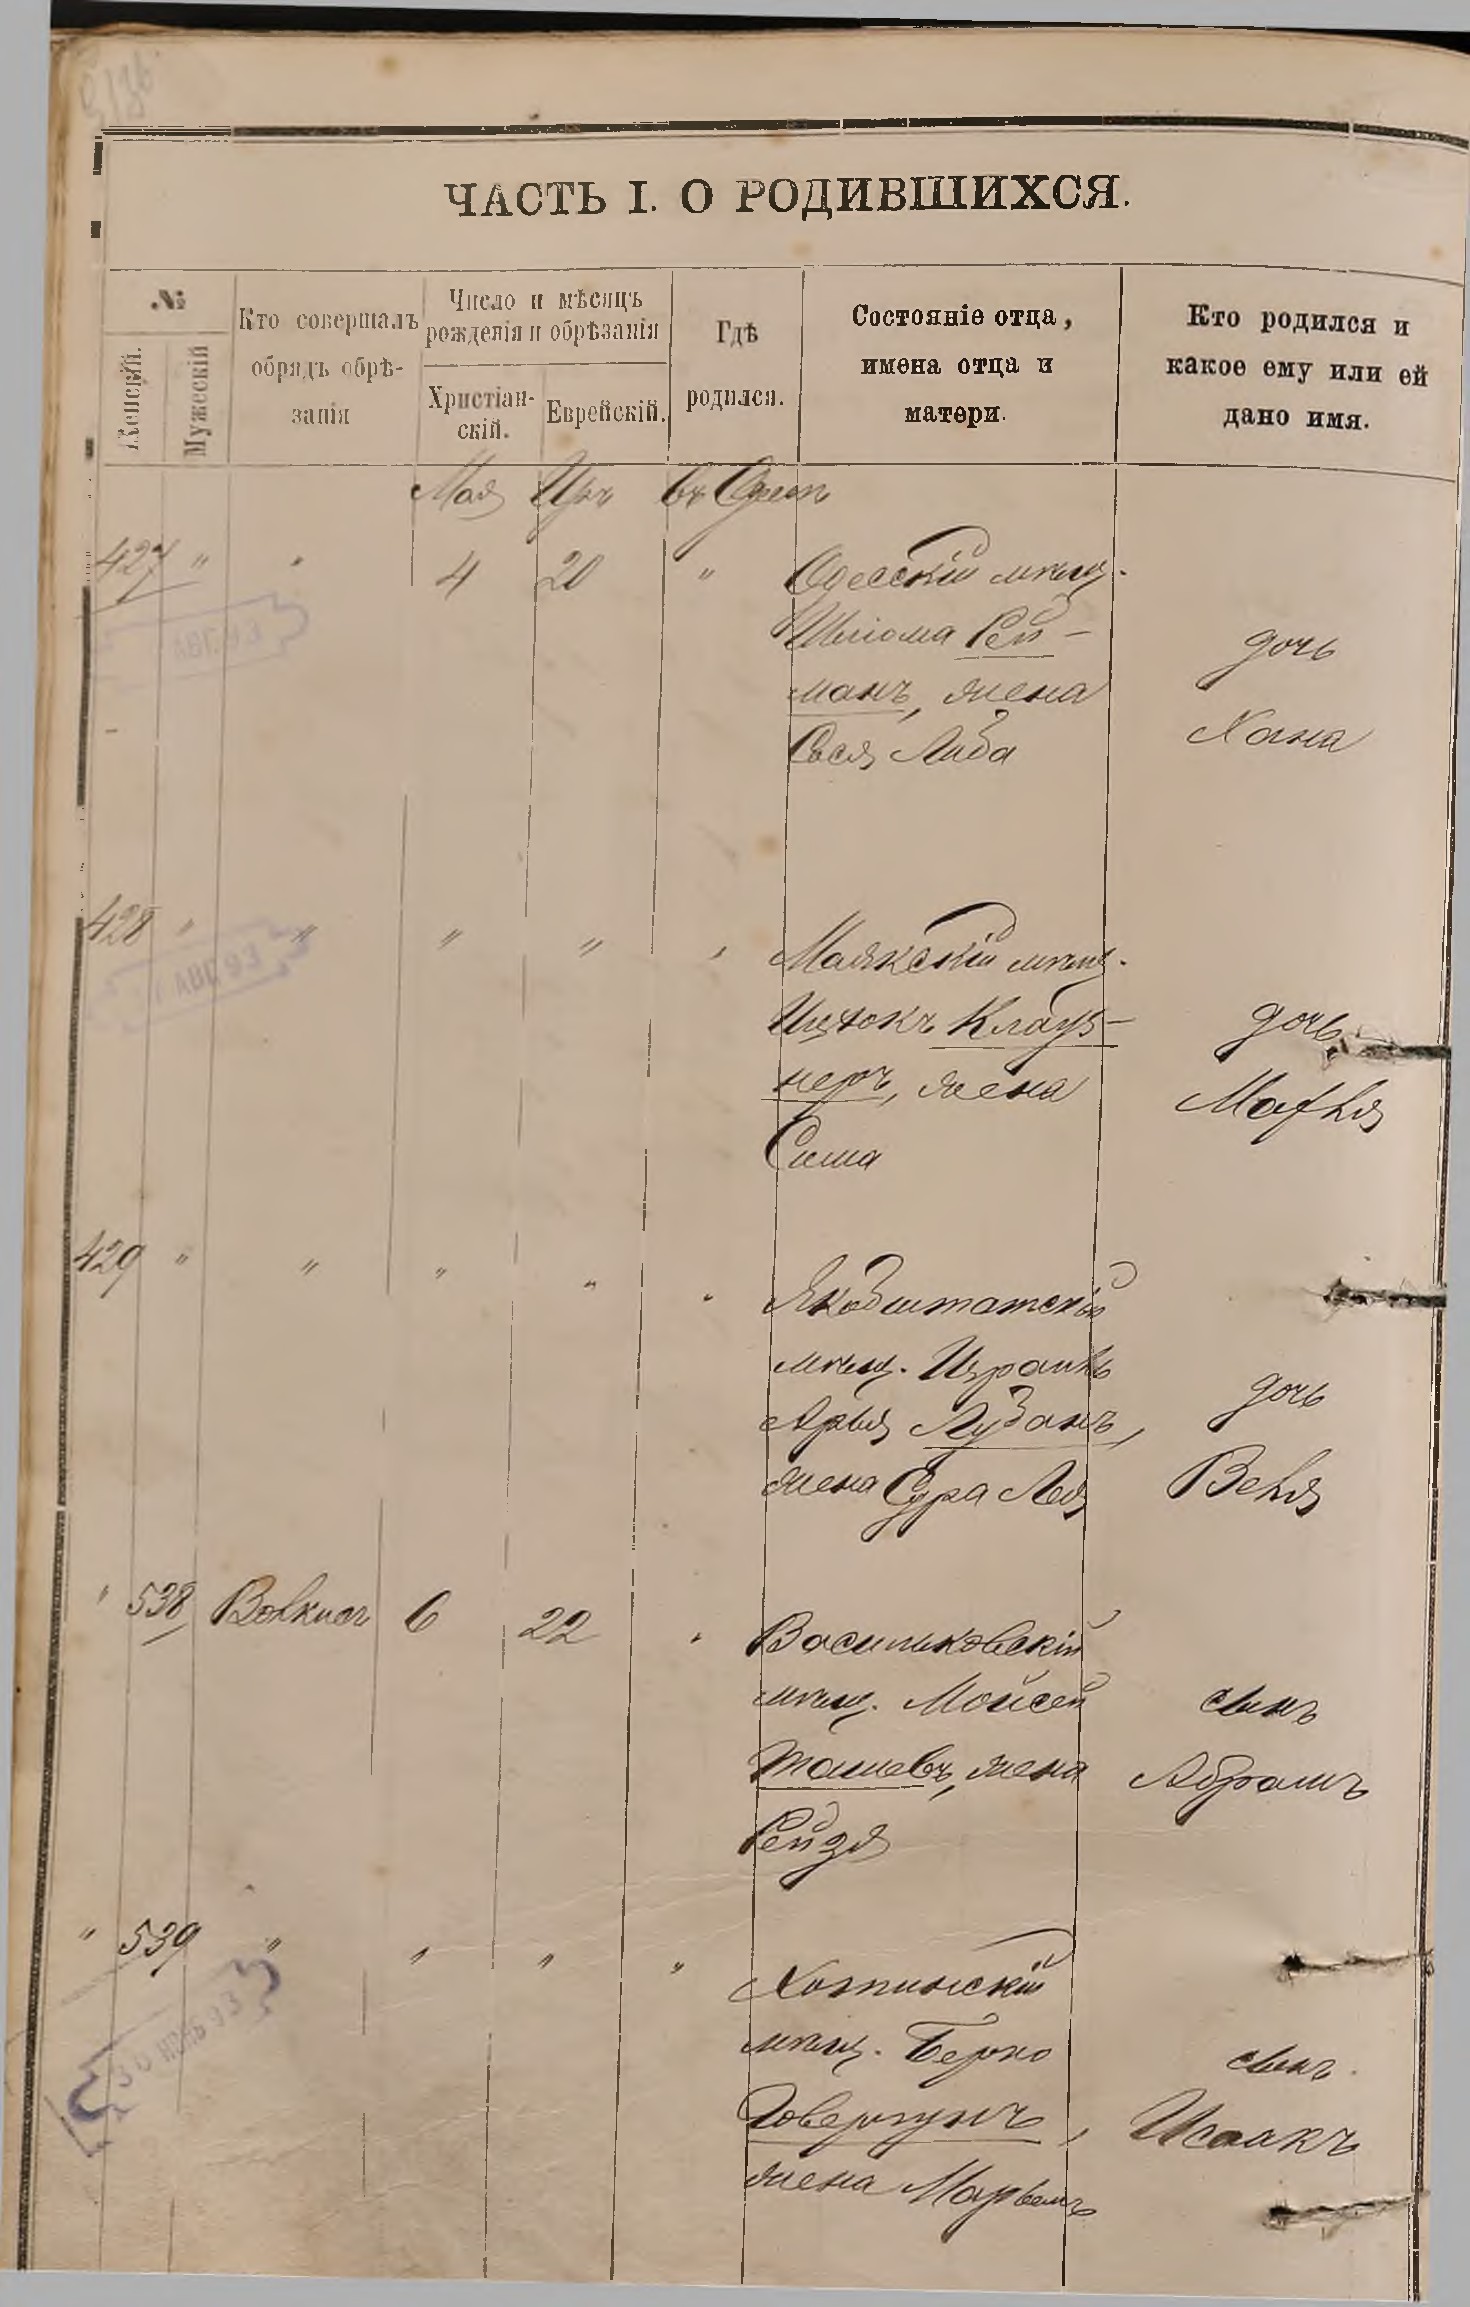 ЧАСТЬ I. О РОДИВШИХСЯ.
№
Женскій.
Мужескій
Кто совершалъ
обрядъ обрѣ-
занія
Число и мѣсяцъ
рожденія и обрѣзанія
Христіан-
скій.
Еврейскій.
Гдѣ
родился.
Состояніе отца,
имена отца и
матери.
Кто родился и
какое ему или ей
дано имя.
Мая Ияръ въ Одессѣ
427 " " 4 20 " Одесскій мѣщ.
Шліома Рей-
манъ, жена
Сося Либа
дочь
Хана
428 " " " " " Маякскій мѣщ.
Ицхокъ Клауз-
неръ, жена
Сима
дочь
429 " " " " " Якобштатскій
мѣщ. Израиль
Арья Лубанъ,
жена Сура Лея
дочь
Бейля
" 538 6 22 " Васильковскій
мѣщ. Мойсей
Ташевъ, жена
Рейзя
сынъ
Абрамъ
" 539 " " " " Хотинскій
мѣщ. Берко
Говергунъ,
жена Марьемъ
сынъ
Исаакъ